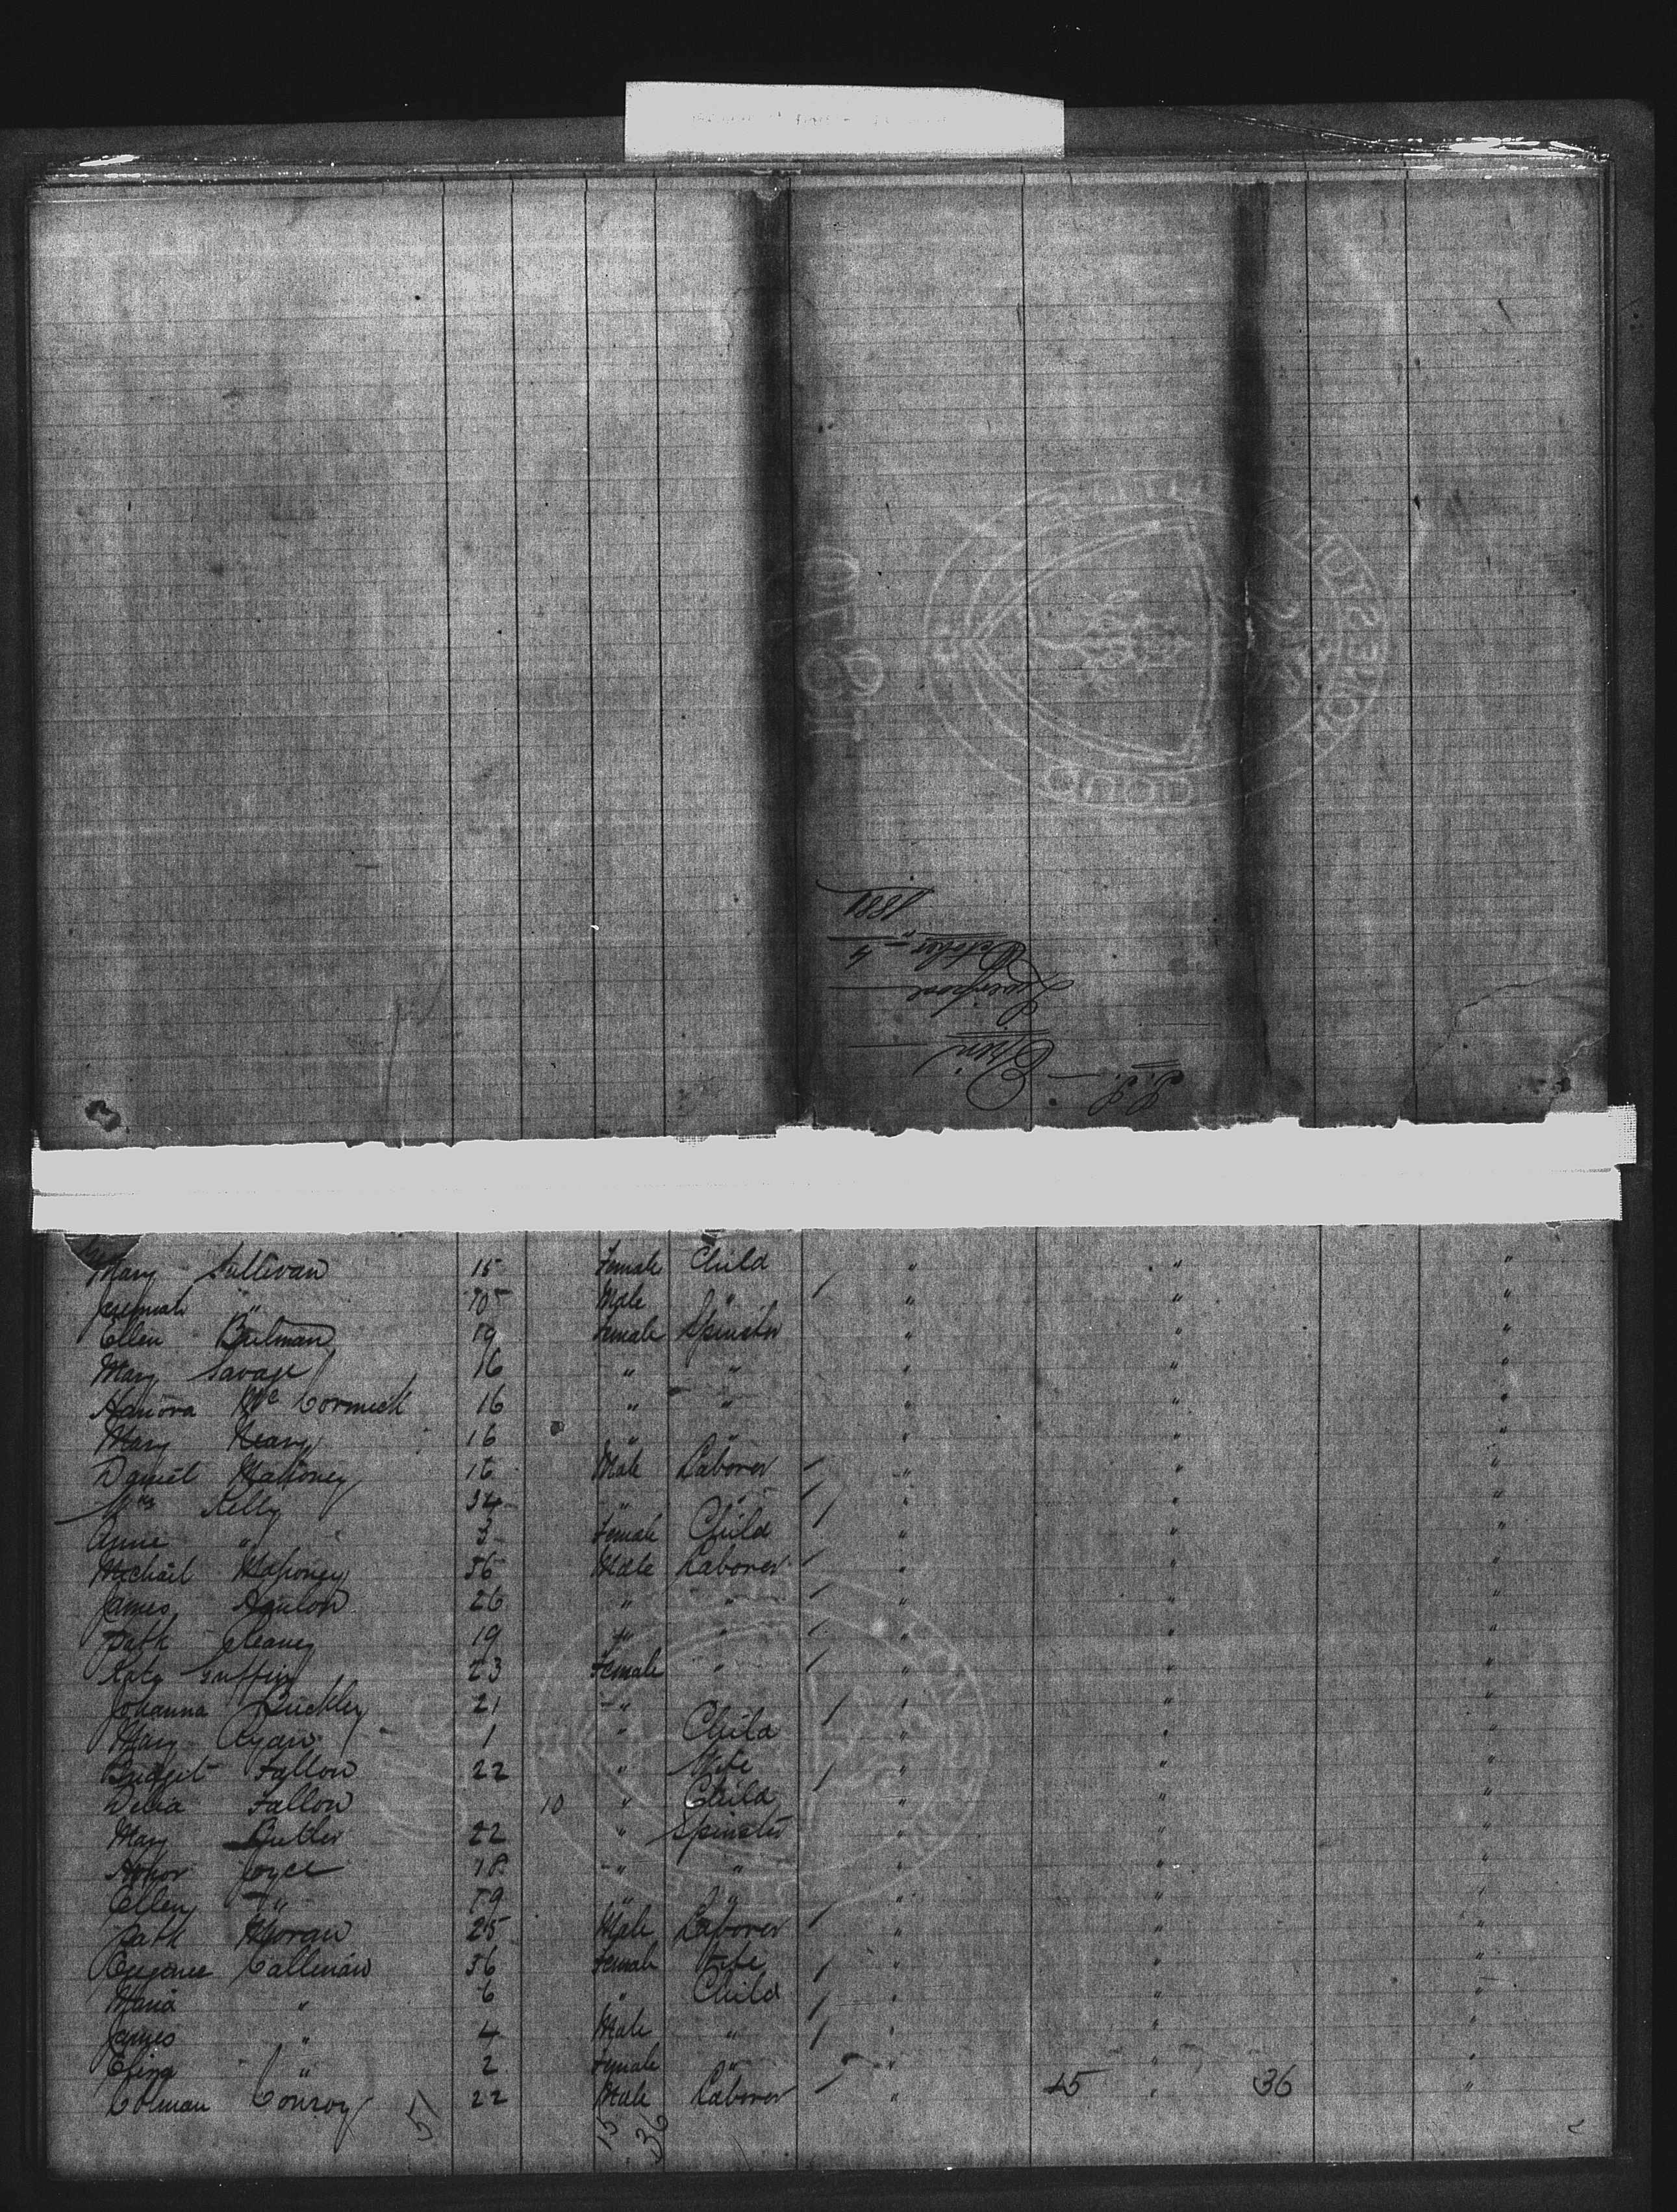 S.S. Erin
Liverpool
October 4"
1881
Mary Sullivan 15 Female Child " " "
Jeremiah " 10 Male " " " "
Ellen 19 Female Spinster " " "
Mary Savage 16 " " " " "
Hanora McCormick 16 " " " " "
Mary 16 " " " " "
Daniel Mahoney 16 Male Laborer " " "
Kelly 34 " " " " "
Anne " 3 Female Child " " "
Michael Mahoney 36 Male Laborer " " "
James 26 " " " " "
Patk 19 " " " " "
Kate Griffin 23 Female " " " "
Johanna Buckley 21 " " " "
Mary Ryan 1 " Child " " "
Bridget Fallon 22 " Wife " " "
Delia Fallon 10 " Child " " "
Mary Butler 22 " Spinster " " "
Honor Joyce 18 " " " " "
Ellen " 19 " " " " "
Patk Moran 25 Male Laborer " " "
Callinan 36 Female Wife " " "
Maria " 6 " Child " " "
James " 4 Male " " " "
" 2 Female " " " "
Colman Conroy 22 Male Laborer " 15 " 36 "
51 15 36